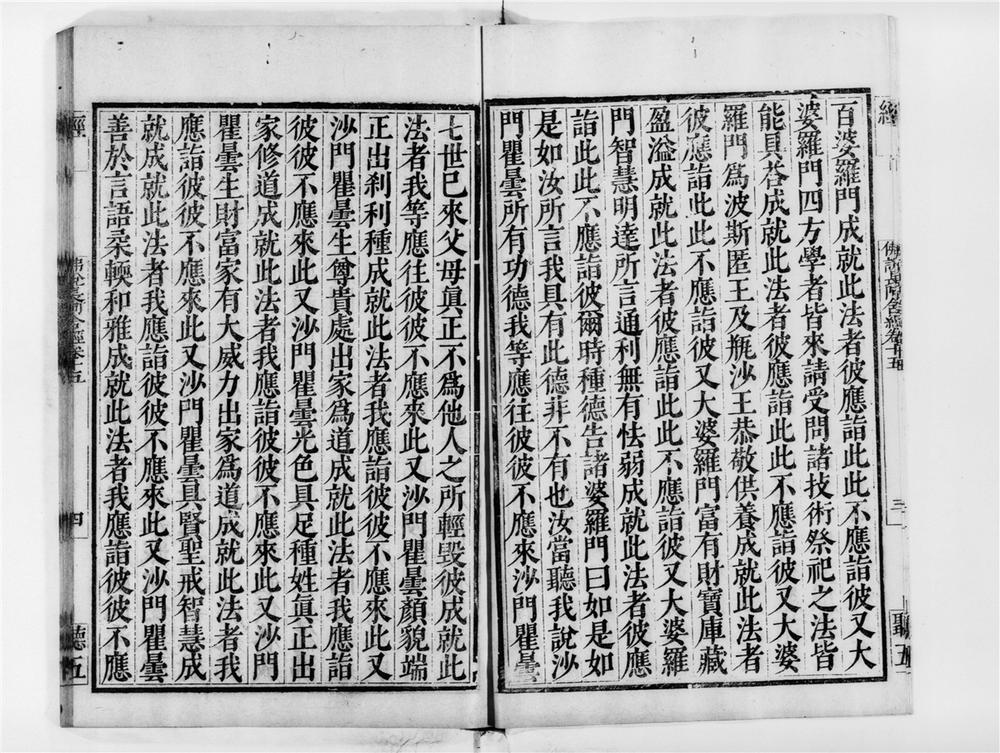 經
百婆羅門成就此法者彼應詣此此不應詣彼又大
婆羅門四方學者皆來請受問諸技術祭祀之法皆
能具荅成就此法者彼應詣此此不應詣彼又大婆
羅門為波斯匿王及瓶沙王恭敬供養成就此法者
彼應詣此此不應詣彼又大婆羅門富有財寶庫藏
盈溢成就此法者彼應詣此此不應詣彼又大婆羅
門智慧明達所言通利無有怯弱成就此法者彼應
詣此此不應詣彼爾時種德告諸婆羅門曰如是如
是如汝所言我具有此德非不有也汝當聽我說沙
門瞿曇所有功德我等應往彼彼不應來沙門瞿曇
七世已來父母真正不為他人之所輕毀彼成就此
法者我等應往彼彼不應來此又沙門瞿曇顏貌端
正出剎利種成就此法者我應詣彼彼不應來此又
沙門瞿曇生尊貴處出家為道成就此法者我應詣
彼彼不應來此又沙門瞿曇光色具足種姓真正出
家修道成就此法者我應詣彼彼不應來此又沙門
瞿曇生財富家有大威力出家為道成就此法者我
應詣彼彼不應來此又沙門瞿曇具賢聖戒智慧成
就成就此法者我應詣彼彼不應來此又沙門瞿曇
善於言語柔輭和雅成就此法者我應詣彼彼不應
經
四
聽五